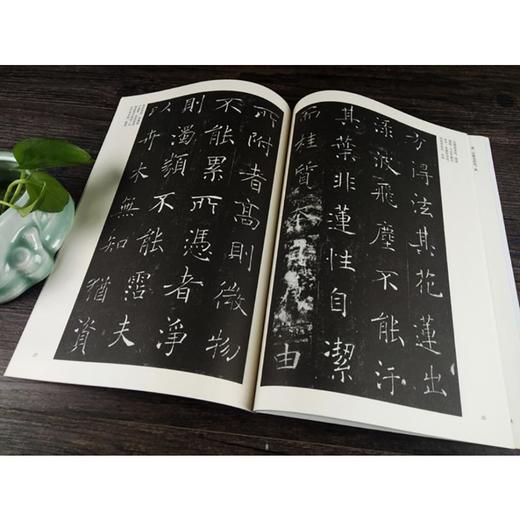 方得泫其花蓮出
淥波飛塵不能汙
其葉非蓮性自潔
而桂質本貞良由
所附者高則微物
不能累所憑者淨
則濁類不能霑夫
以卉木無知猶資